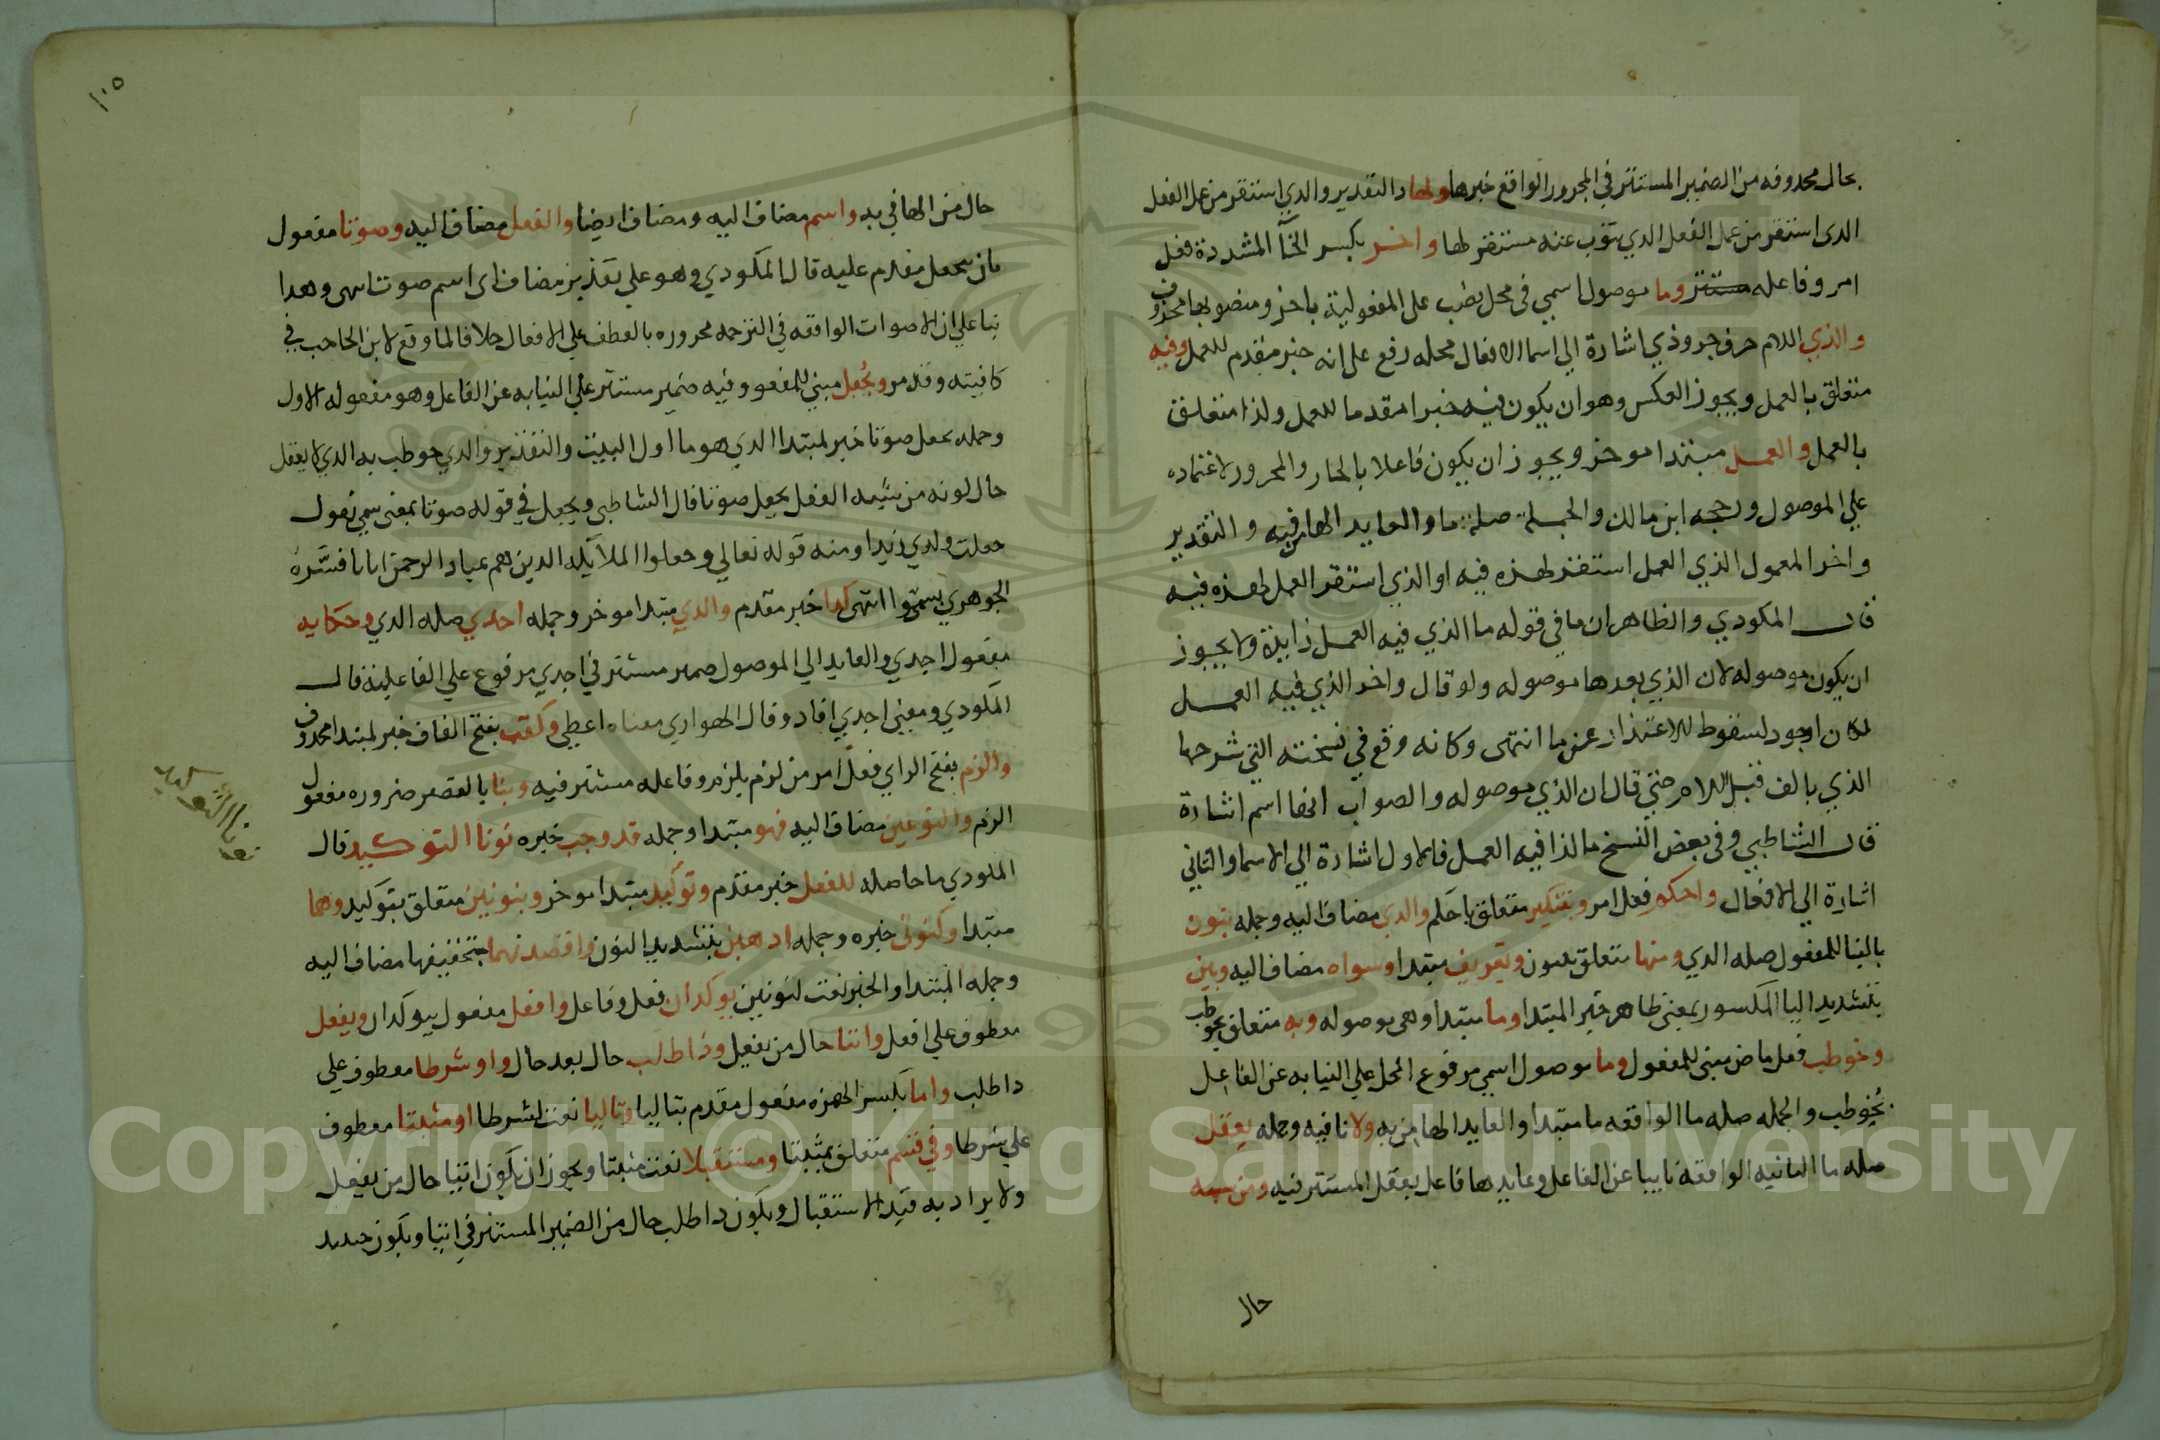 بحال محدوفه من الضمير المستتر في المجرور الواقع خبرها ولها والتقدير والدي استقر من عمل الفعل
الدى استقر من عمل الفعل الدي ينوب عنه مستقر لها واخر بكسر الخآ المشددة فعل
امر وفاعله مستتر وما موصول اسمي في محل نصب على المفعولية باخر ومنصوبها محذوف
والذي اللام حرف جر وذي اشارة الي اسما الافعال محله رفع على انه خبر مقدم للعمل وفيه
متعلق بالعمل ويجوز العكس وهوان يكون فيه خبرا مقدما للعمل ولذا متعلق
بالعمل والعمل مبتدا موخر ويجوز ان يكون فاعلا بالجار والمجرور لاعتماده
علي الموصول ورجحه ابن مالك والجملة صلة ما والعايد الها من فيه والتقدير
واخر المعمول الذي العمل استقر لهذه فيه او الذي استقر العمل لهذه فيه
قال المكودي والظاهر ان ما في قوله ما الذي فيه العمل زايدة ولا يجوز
ان يكون موصوله لان الذي بعدها موصوله ولو قال واخر الذي فيه العمل
لكان اجود لسقوط الاعتذار عن ما انتهى وكانه وقع في نسخته التي شرحها
الذي بالف قبل اللام حتي قال ان الذي موصوله والصواب انها اسم اشارة
قال الشاطبي وفي بعض النسخ ما لذا فيه العمل فالاول اشارة الي الاسما والثاني
اشارة الي الافعال واحكم فعل امر وبتنكير متعلق باحكم والذي مضاف اليه وجمله ينون
بالبنا للمفعول صله الدي ومنها متعلق بينون وتعريف مبتدا وسواه مضاف اليه وبين
بتشديد اليا المكسور بمعني ظاهر خبر المبتدا وما مبتدا وهي موصوله وبه متعلق بخوطب
وخوطب فعل ماض مبني للمفعول وما موصول اسمي مرفوع المحل علي النيابه عن الفاعل
بخوطب والجمله صله ما الواقعه ما مبتدا والعايد الها من به ولا نافيه وجمله يعقل
صله ما الثانيه الواقعه نايبا عن الفاعل وعايدها فاعل يعقل المستتر فيه ومن شبه
حال
١٠٥
حال من الها في به واسم مضاف اليه ومضاف ايضا والفعل مضاف اليه وصوتا مفعول
ثان بيجعل مقدم عليه قال المكودي وهو علي تقدير مضاف اى اسم صوت انتهى وهدا
بنا علي ان الاصوات الواقعه في الترجمه مجروره بالعطف علي الافعال خلافا لما وقع لابن الحاجب في
كافيته وقد مر ويُجعل مبني للمفعو وفيه ضمير مستتر علي النيابه عن الفاعل وهو مفعوله الاول
وجمله يجعل صوتا خبر لمبتدا الدي هو ما اول البيت والتقدير والدي خوطب به الدي لا يعقل
حال كونه من شبه الفعل يجعل صوتا قال الشاطبي ويجعل في قوله صوتا بمعني سمي تقول
جعلت ولدي زيدا ومنه قوله تعالي وجعلوا الملآيكه الدين هم عباد الرحمن اناثا فسَّره
الجوهري بسمّوا انتهى كدا خبر مقدم والدي مبتدا موخر وجمله اجدي صله الدي وحكايه
مفعول اجدي والعايد الي الموصول ضمير مستتر في اجدي مرفوع علي الفاعلية قال
المكودي ومعني اجدي افاد وقال الهواري معناه اعطي وكقب بفتح القاف خبر لمبتدا محذوف
والزم بفتح الزاي فعل امر من لزم يلزم وفاعله مستتر فيه وبنا بالقصر ضروره مفعول
الزم والنوعين مضاف اليه فهو مبتدا وجمله قد وجب خبره نونا التوكيد قال
المكودي ما حاصله للفعل خبر مقدم وتوكيد مبتدا موخر وبنونين متعلق بتوكيد وهما
مبتدا وكنوني خبره وجمله اذهبن بتشديد النون واقصدنهما بتخفيفها مضاف اليه
وجمله المبتدا والخبر نعت لنونين يوكدان فعل وفاعل وافعل مفعول يوكدان ويفعل
معطوف علي افعل واتيا حال من يفعل وذا طلب حال بعد حال واو شرطا معطوف علي
دا طلب واما بكسر الهمزه مفعول مقدم بتاليا وتاليا نعت لشرطا او مثبتا معطوف
علي شرطا وفي قسم متعلق بمثبتا ومستقبلا نعت مثبتا ويجوز ان يكون اتيا حال من يفعل
ولا يراد به قيد الاستقبال ويكون دا طلب حال من الضمير المستتر في اتيا ويكون حينيد
نونا التوكيد
Copyright © King Saud University
1957